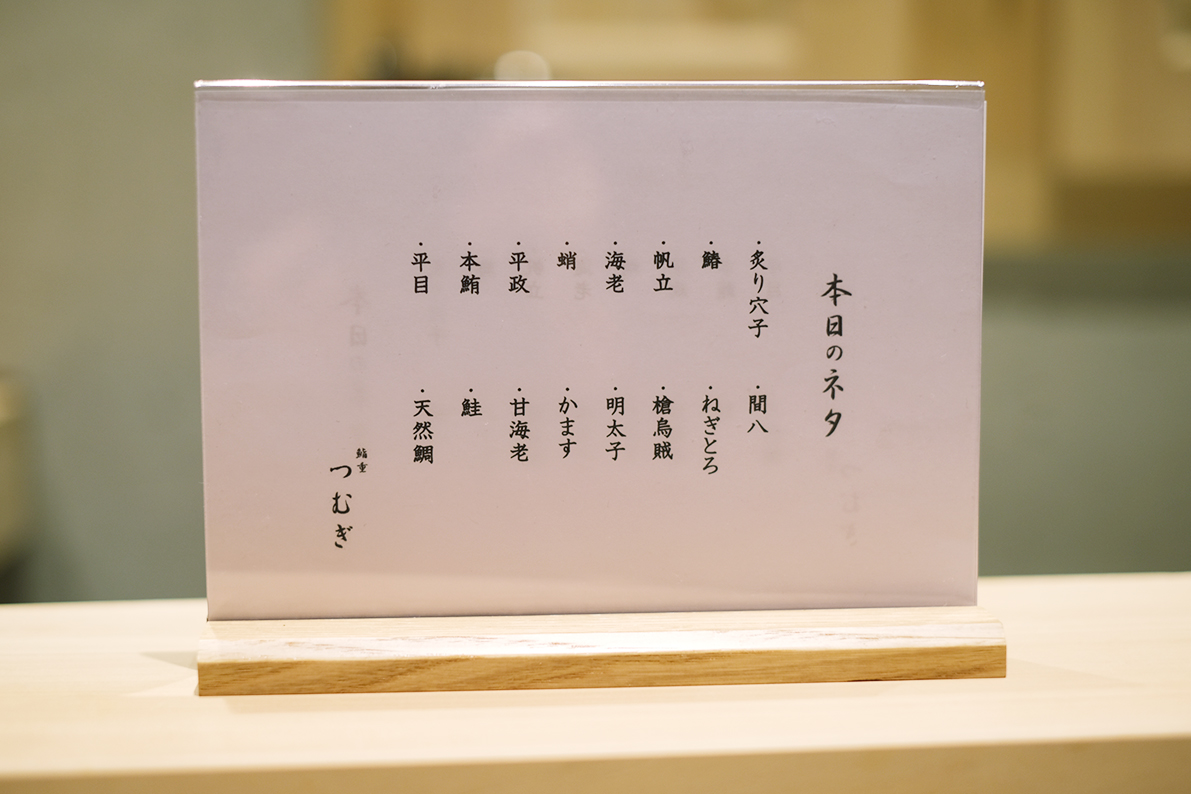 本日のネタ
・炙り穴子
・間八
・鰆
・ねぎとろ
・帆立
・槍烏賊
・海老
・明太子
・蛸
・かます
・平政
・甘海老
・本鮪
・鮭
・平目
・天然鯛
鮨重
つむぎ